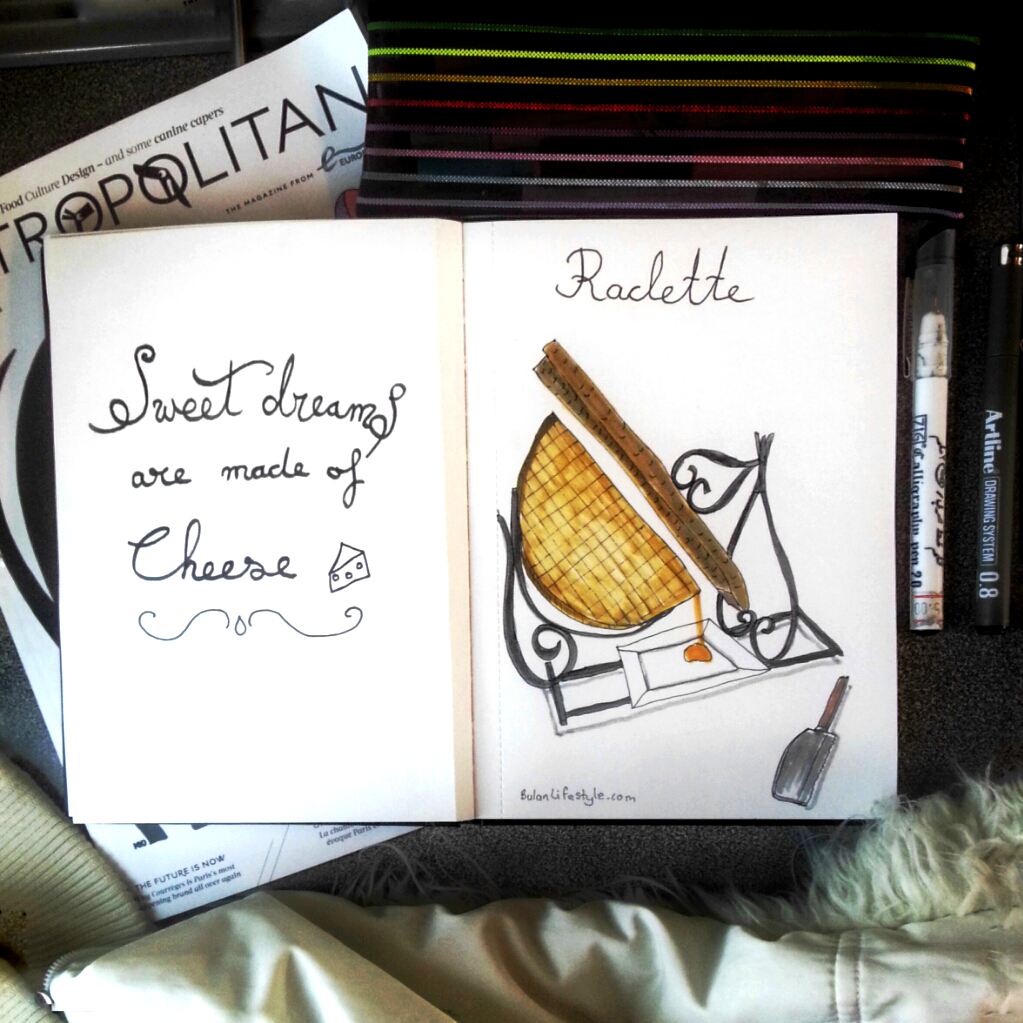 Food Culture Design – and some canine capers
TROPOLITAN
THE MAGAZINE FROM
Sweet dreams
are made of
Cheese
Raclette
BulanLifestyle.com
Calligraphy pen 2.0
Artline DRAWING SYSTEM 0.8
THE FUTURE IS NOW
Courrèges is Paris's most
brand all over again
La
évoque Paris